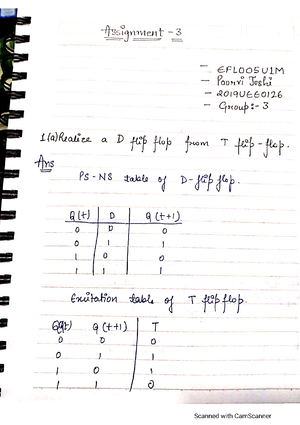 Assignment - 3
- EFL005U1M
- Poorvi Joshi
- 2019UEE0126
- Group:- 3
1.(a) Realize a D flip flop from T flip-flop.
Ans
PS-NS table of D-flip flop.
Q(t) D Q(t+1)
0 0 0
0 1 1
1 0 0
1 1 1
Exitation table of T flip flop
Q(t) Q(t+1) T
0 0 0
0 1 1
1 0 1
1 1 0
Scanned with CamScanner